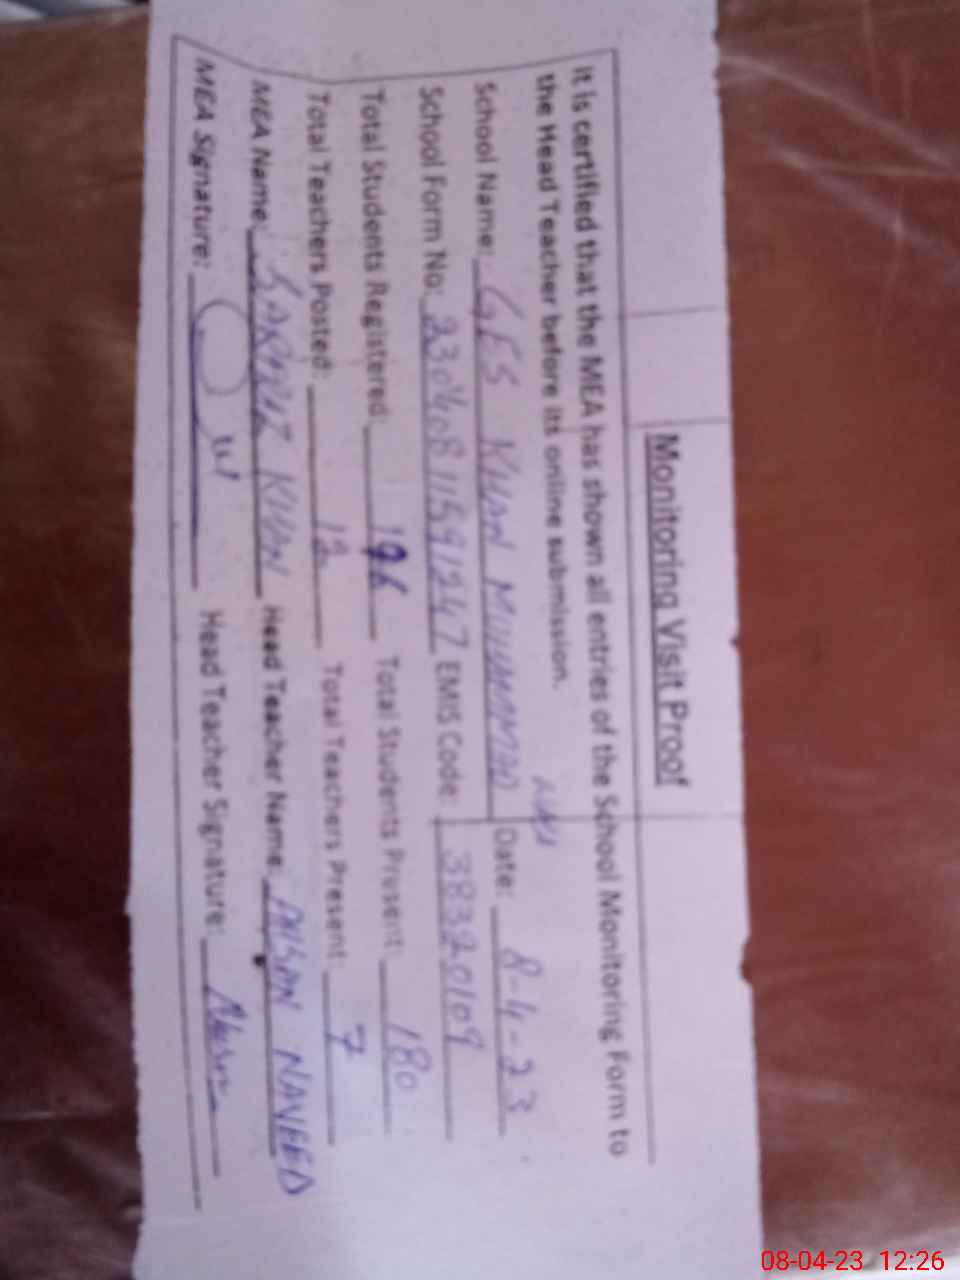 Monitoring Visit Proof
It is certified that the MEA has shown all entries of the School Monitoring Form to
the Head Teacher before its online submission.
School Name: GES KHAN MUHAMMAD Date: 8-4-23
School Form No: 23040811591247 EMIS Code: 38320109
Total Students Registered: 196 Total Students Present: 180
Total Teachers Posted: 12 Total Teachers Present: 7
MEA Name: KHAN Head Teacher Name: NAVEED
MEA Signature: Head Teacher Signature:
08-04-23 12:26